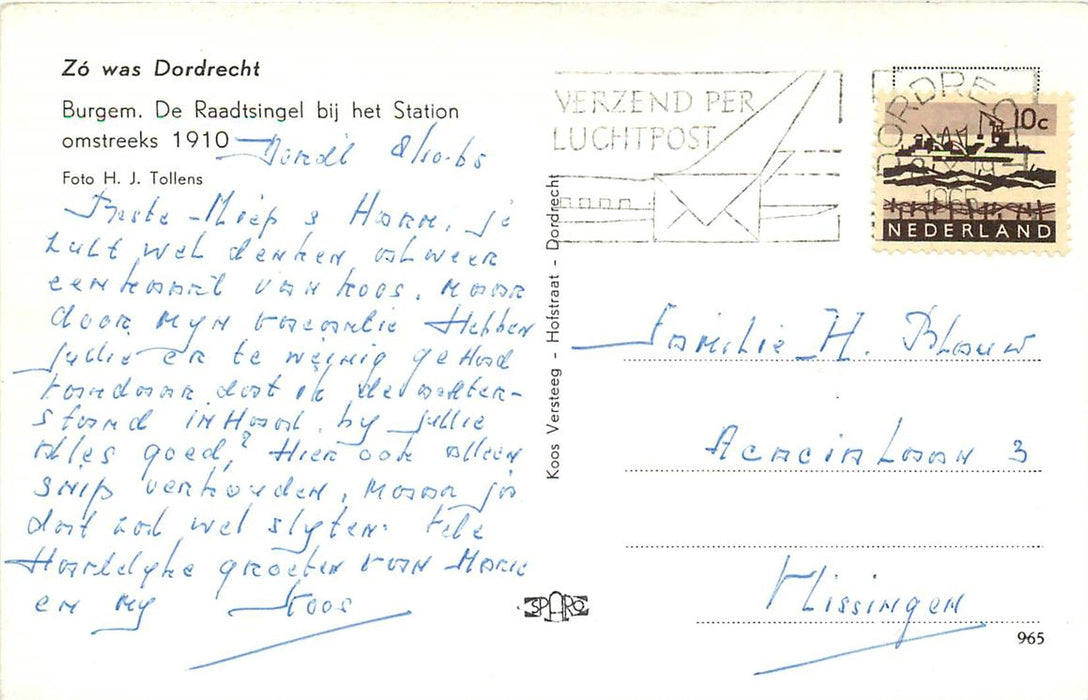 Zó was Dordrecht
Burgem. De Raadtsingel bij het Station
omstreeks 1910
Foto H. J. Tollens
Dordt 8/10-65
Beste Miep & Harm, je
zult wel denken alweer
een kaart van Koos. Maar
door myn vacantie Hebben
jullie er te weinig gehad
vandaar dat ik de achter-
stand inHaal. by jullie
Alles goed? Hier ook alleen
snip verkouden, maar ja
dat zal wel slyten. Vele
Hartelyke groeten van Marie
en my Koos
Koos Versteeg - Hofstraat - Dordrecht
SPARO
VERZEND PER
LUCHTPOST
DORDRECHT
1965
10c
NEDERLAND
Familie H. Blauw
Acacialaan 3
Vlissingen
965